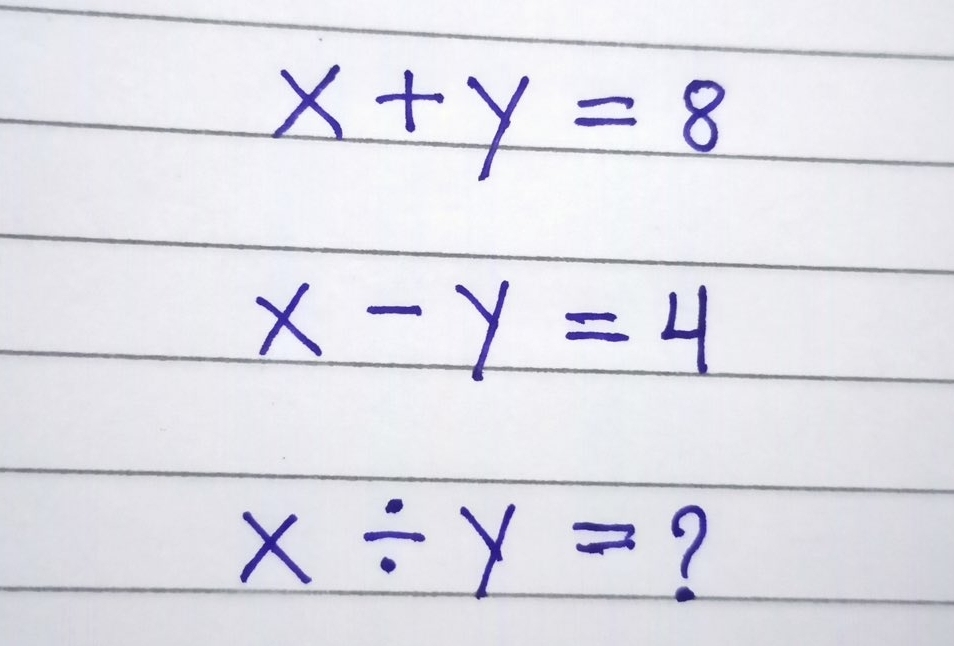 x + y = 8
x - y = 4
x ÷ y = ?